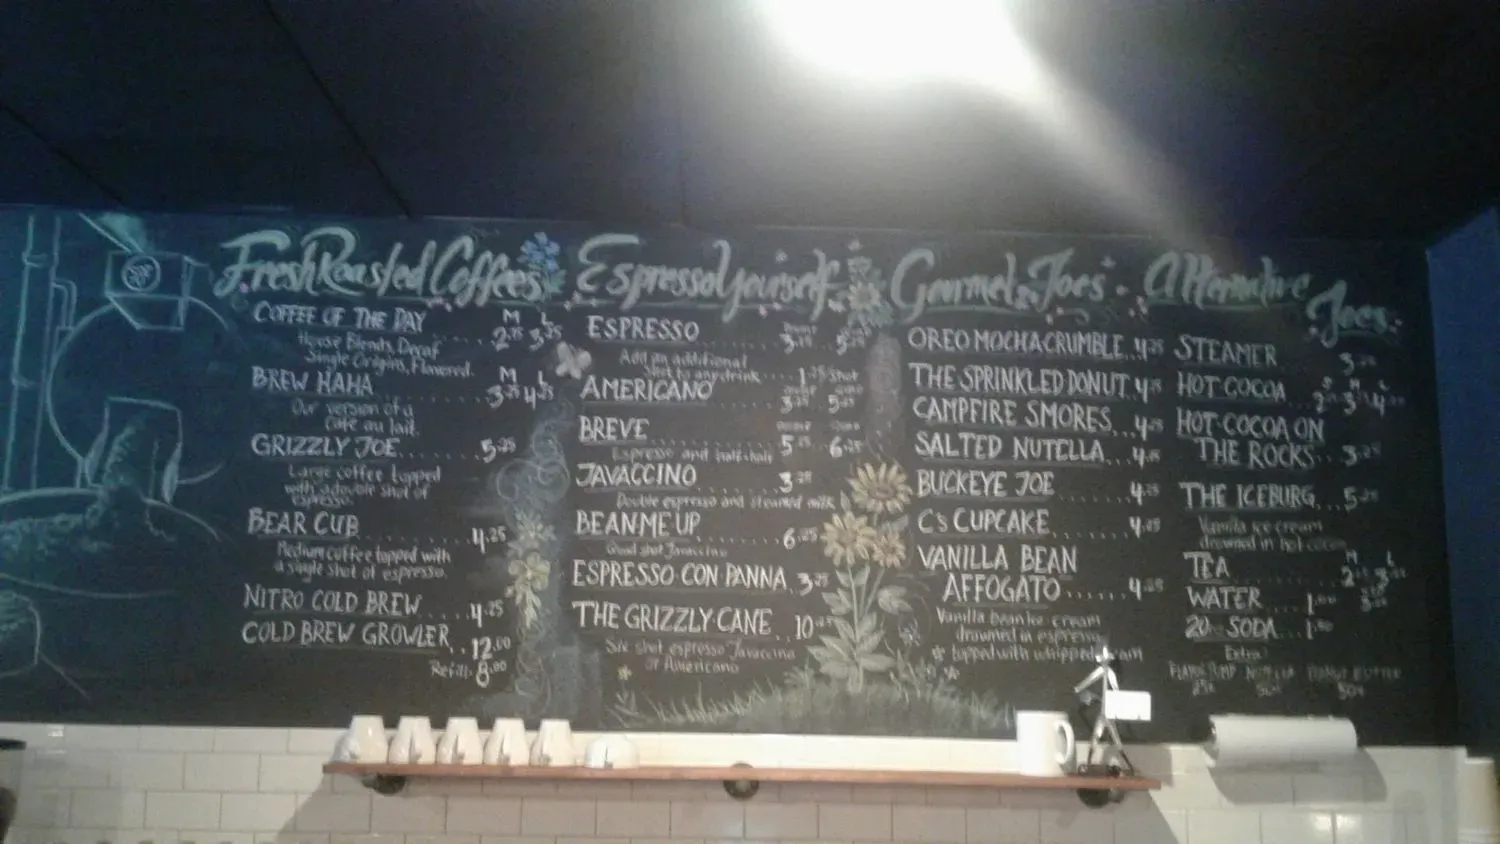 Fresh Roasted Coffees
COFFEE OF THE DAY
M L
2.75 3.25
House Blends, Decaf
Single Origins, Flavored.
BREW HAHA
M L
3.75 4.25
Our version of a
cafe au lait.
GRIZZLY JOE 5.25
Large coffee topped
with a double shot of
espresso.
BEAR CUB 4.25
Medium coffee topped with
a single shot of espresso.
NITRO COLD BREW 4.25
COLD BREW GROWLER 12.00
Refill 8.00
Espresso Yourself
ESPRESSO
Add an additional
shot to any drink 1.25/shot
AMERICANO
BREVE
Espresso and half & half
JAVACCINO
Double espresso and steamed milk
BEAN ME UP
Quad shot Javaccino
ESPRESSO CON PANNA
THE GRIZZLY CANE
Six shot espresso Javaccino
or Americano
Gourmet Joes
OREO MOCHA CRUMBLE 4.25
THE SPRINKLED DONUT 4.25
CAMPFIRE SMORES 4.25
SALTED NUTELLA 4.25
BUCKEYE JOE 4.25
C's CUPCAKE 4.25
VANILLA BEAN
AFFOGATO
Vanilla bean ice cream
drowned in espresso
topped with whipped cream
Alternative
Joes
STEAMER
HOT COCOA
HOT COCOA ON
THE ROCKS
THE ICEBURG
Vanilla ice cream
drowned in hot cocoa
TEA
WATER
20 SODA
Extra